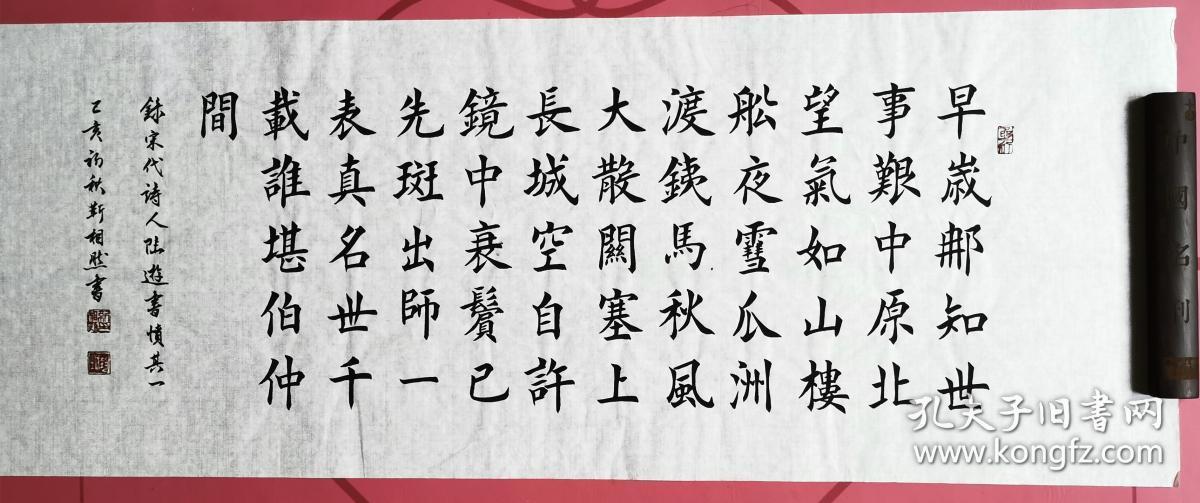 早歲那知世
事艱中原北
望氣如山樓
舩夜雪瓜洲
渡鐵馬秋風
大散關塞上
長城空自許
鏡中衰鬢已
先斑出師一
表真名世千
載誰堪伯仲
間
錄宋代詩人陸遊書憤其一
己亥初秋靳相然書
中國名刊
孔夫子旧書网
www.kongfz.com